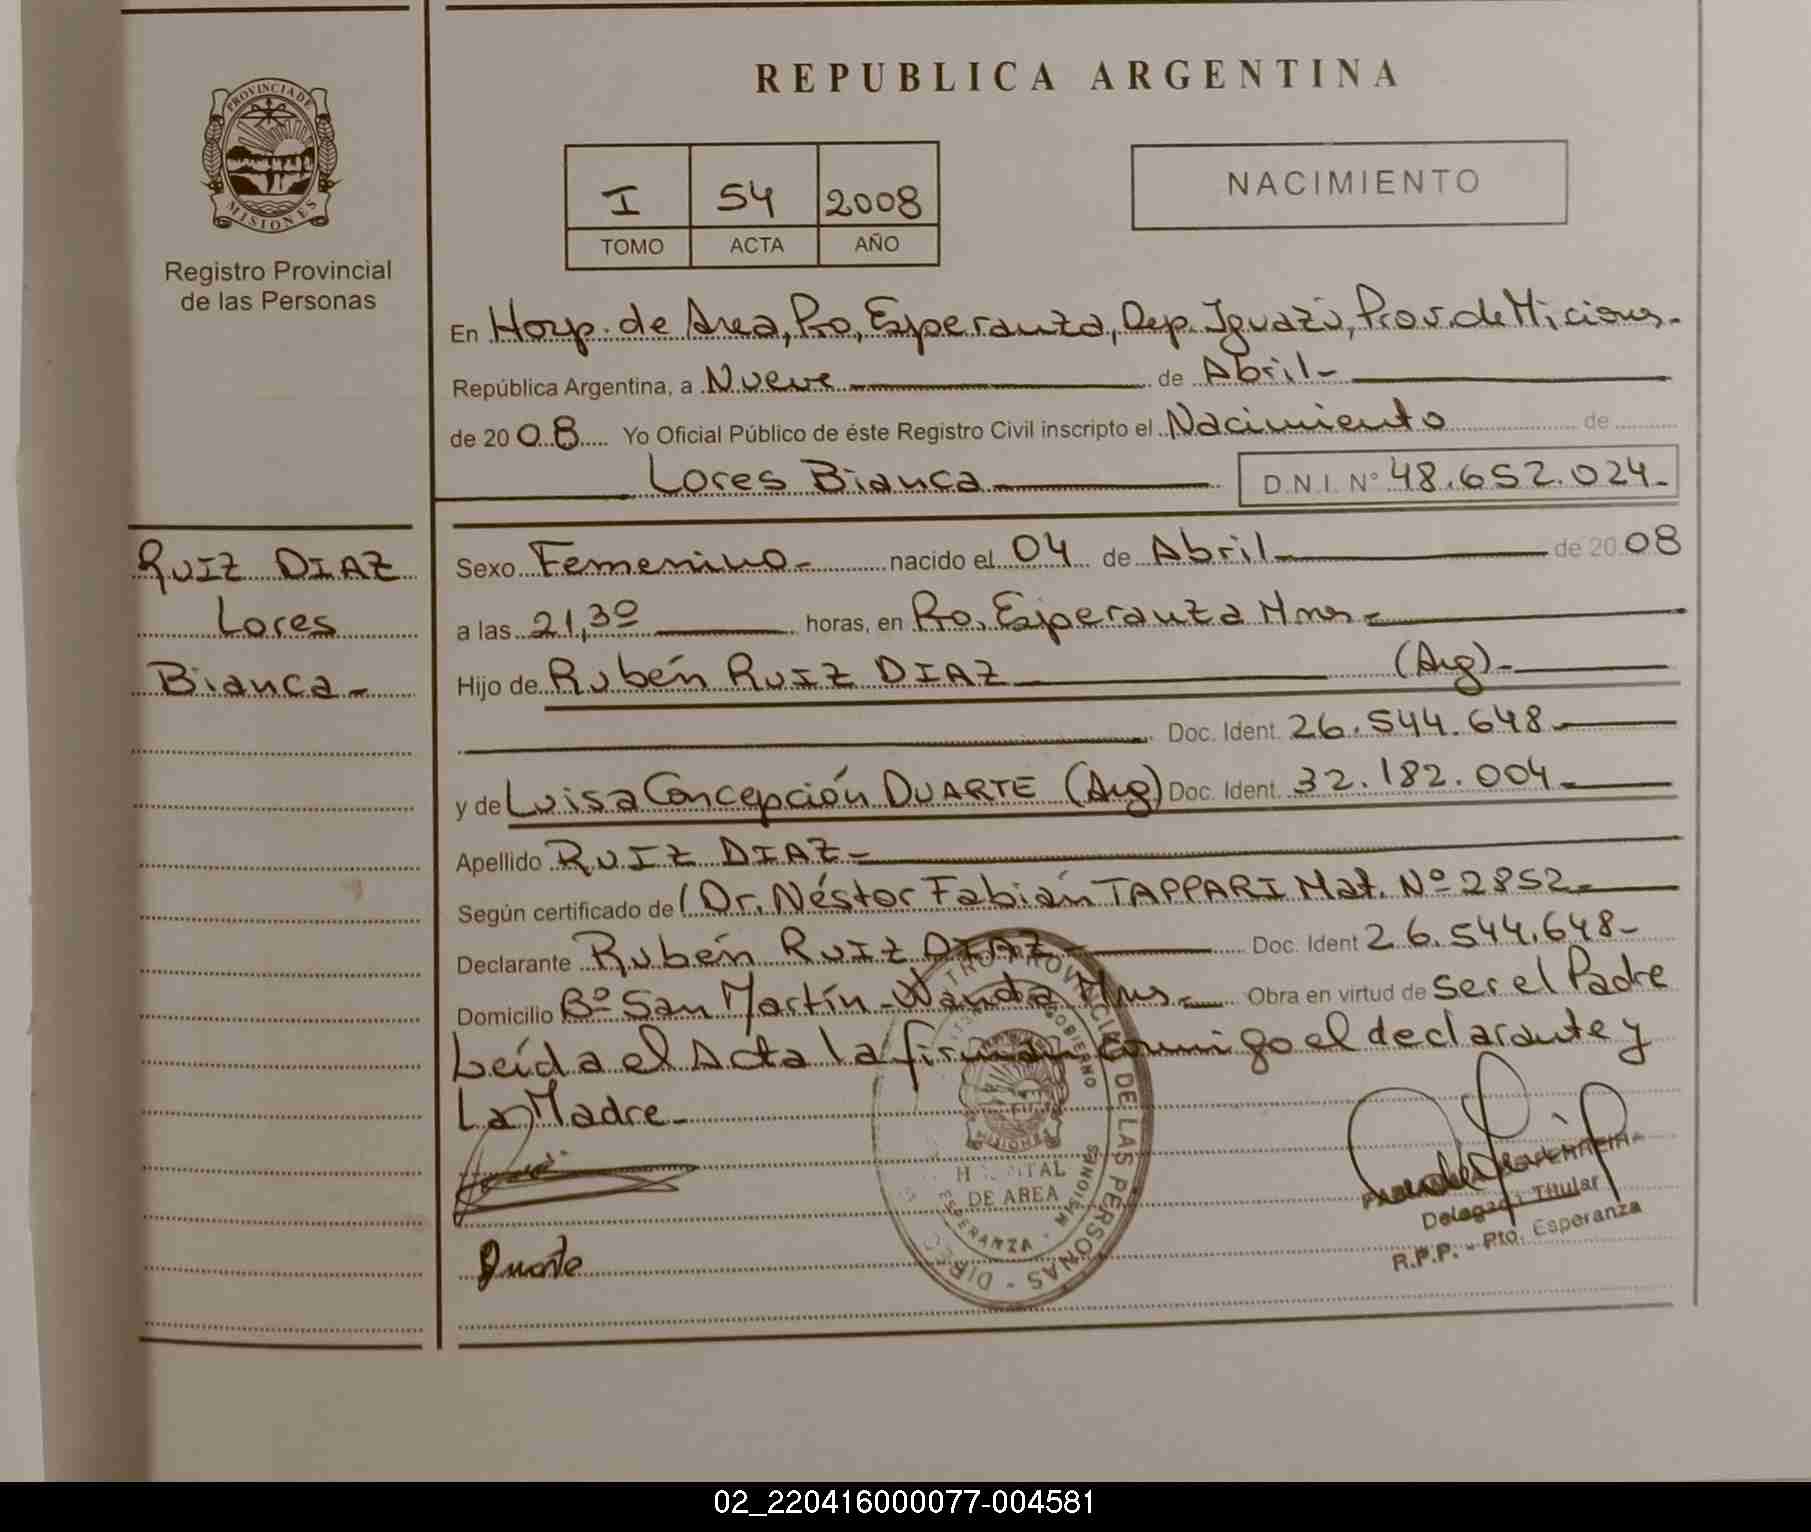 REPUBLICA ARGENTINA
PROVINCIA DE
MISIONES
Registro Provincial
de las Personas
I 54 2008
TOMO ACTA AÑO
NACIMIENTO
En Hosp. de Area, Pto, Esperanza, Dep. Iguazú, Prov. de Miciones.-
República Argentina, a Nueve de Abril-
de 2008 Yo Oficial Público de éste Registro Civil inscripto el Nacimiento de
Lores Bianca D.N.I. Nº 48.652.024-
RUIZ DIAZ
Lores
Bianca-
Sexo Femenino- nacido el 04 de Abril- de 2008
a las 21,30 horas, en Pto, Esperanza Mnes-
Hijo de Rubén RUIZ DIAZ (Arg)-
Doc. Ident. 26.544.648-
y de Luisa Concepción DUARTE (Arg) Doc. Ident. 32.182.004-
Apellido RUIZ DIAZ-
Según certificado de (Dr. Néstor Fabián TAPPARI Mat. Nº 2852-
Declarante Rubén RUIZ DIAZ- Doc. Ident 26.544.648-
Domicilio Bº San Martín-Wanda Mnes- Obra en virtud de ser el Padre
Leída el Acta la firman conmigo el declarante y
La Madre-
Duarte
DE LAS PERSONAS
DE AREA
ESPERANZA - MISIONES
Delegado Titular
R.P.P. - Pto. Esperanza
02_220416000077-004581